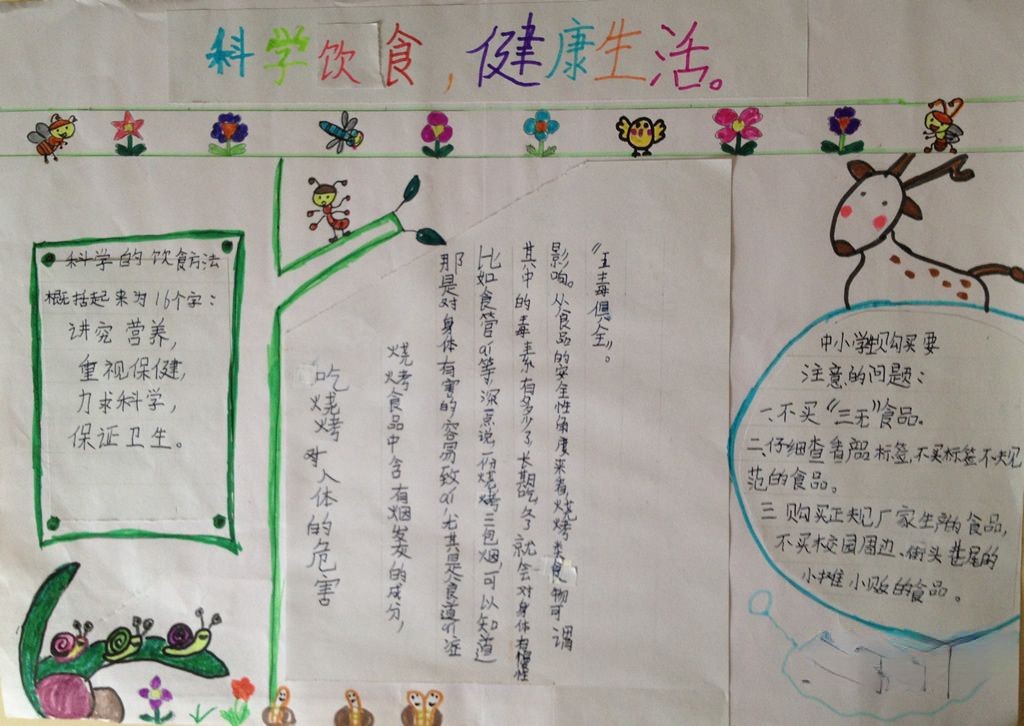 科学饮食，健康生活。
科学的饮食方法
概括起来为16个字：
讲究营养，
重视保健，
力求科学，
保证卫生。
吃烧烤对人体的危害
烧烤食品中含有烟发炎的成分，
那是对身体有害的，容易致ai，尤其是食道ai症
比如食管ai等，深点说一份烧烤三包烟，可以知道
其中的毒素有多少了，长期吃多了就会对身体有慢性
影响。从食品的安全性角度来看，烧烤类食物可谓
“五毒俱全”。
中小学生购买要
注意的问题：
一、不买“三无”食品。
二、仔细查看产品标签，不买标签不规
范的食品。
三、购买正规厂家生产的食品，
不买校园周边、街头巷尾的
小摊小贩的食品。